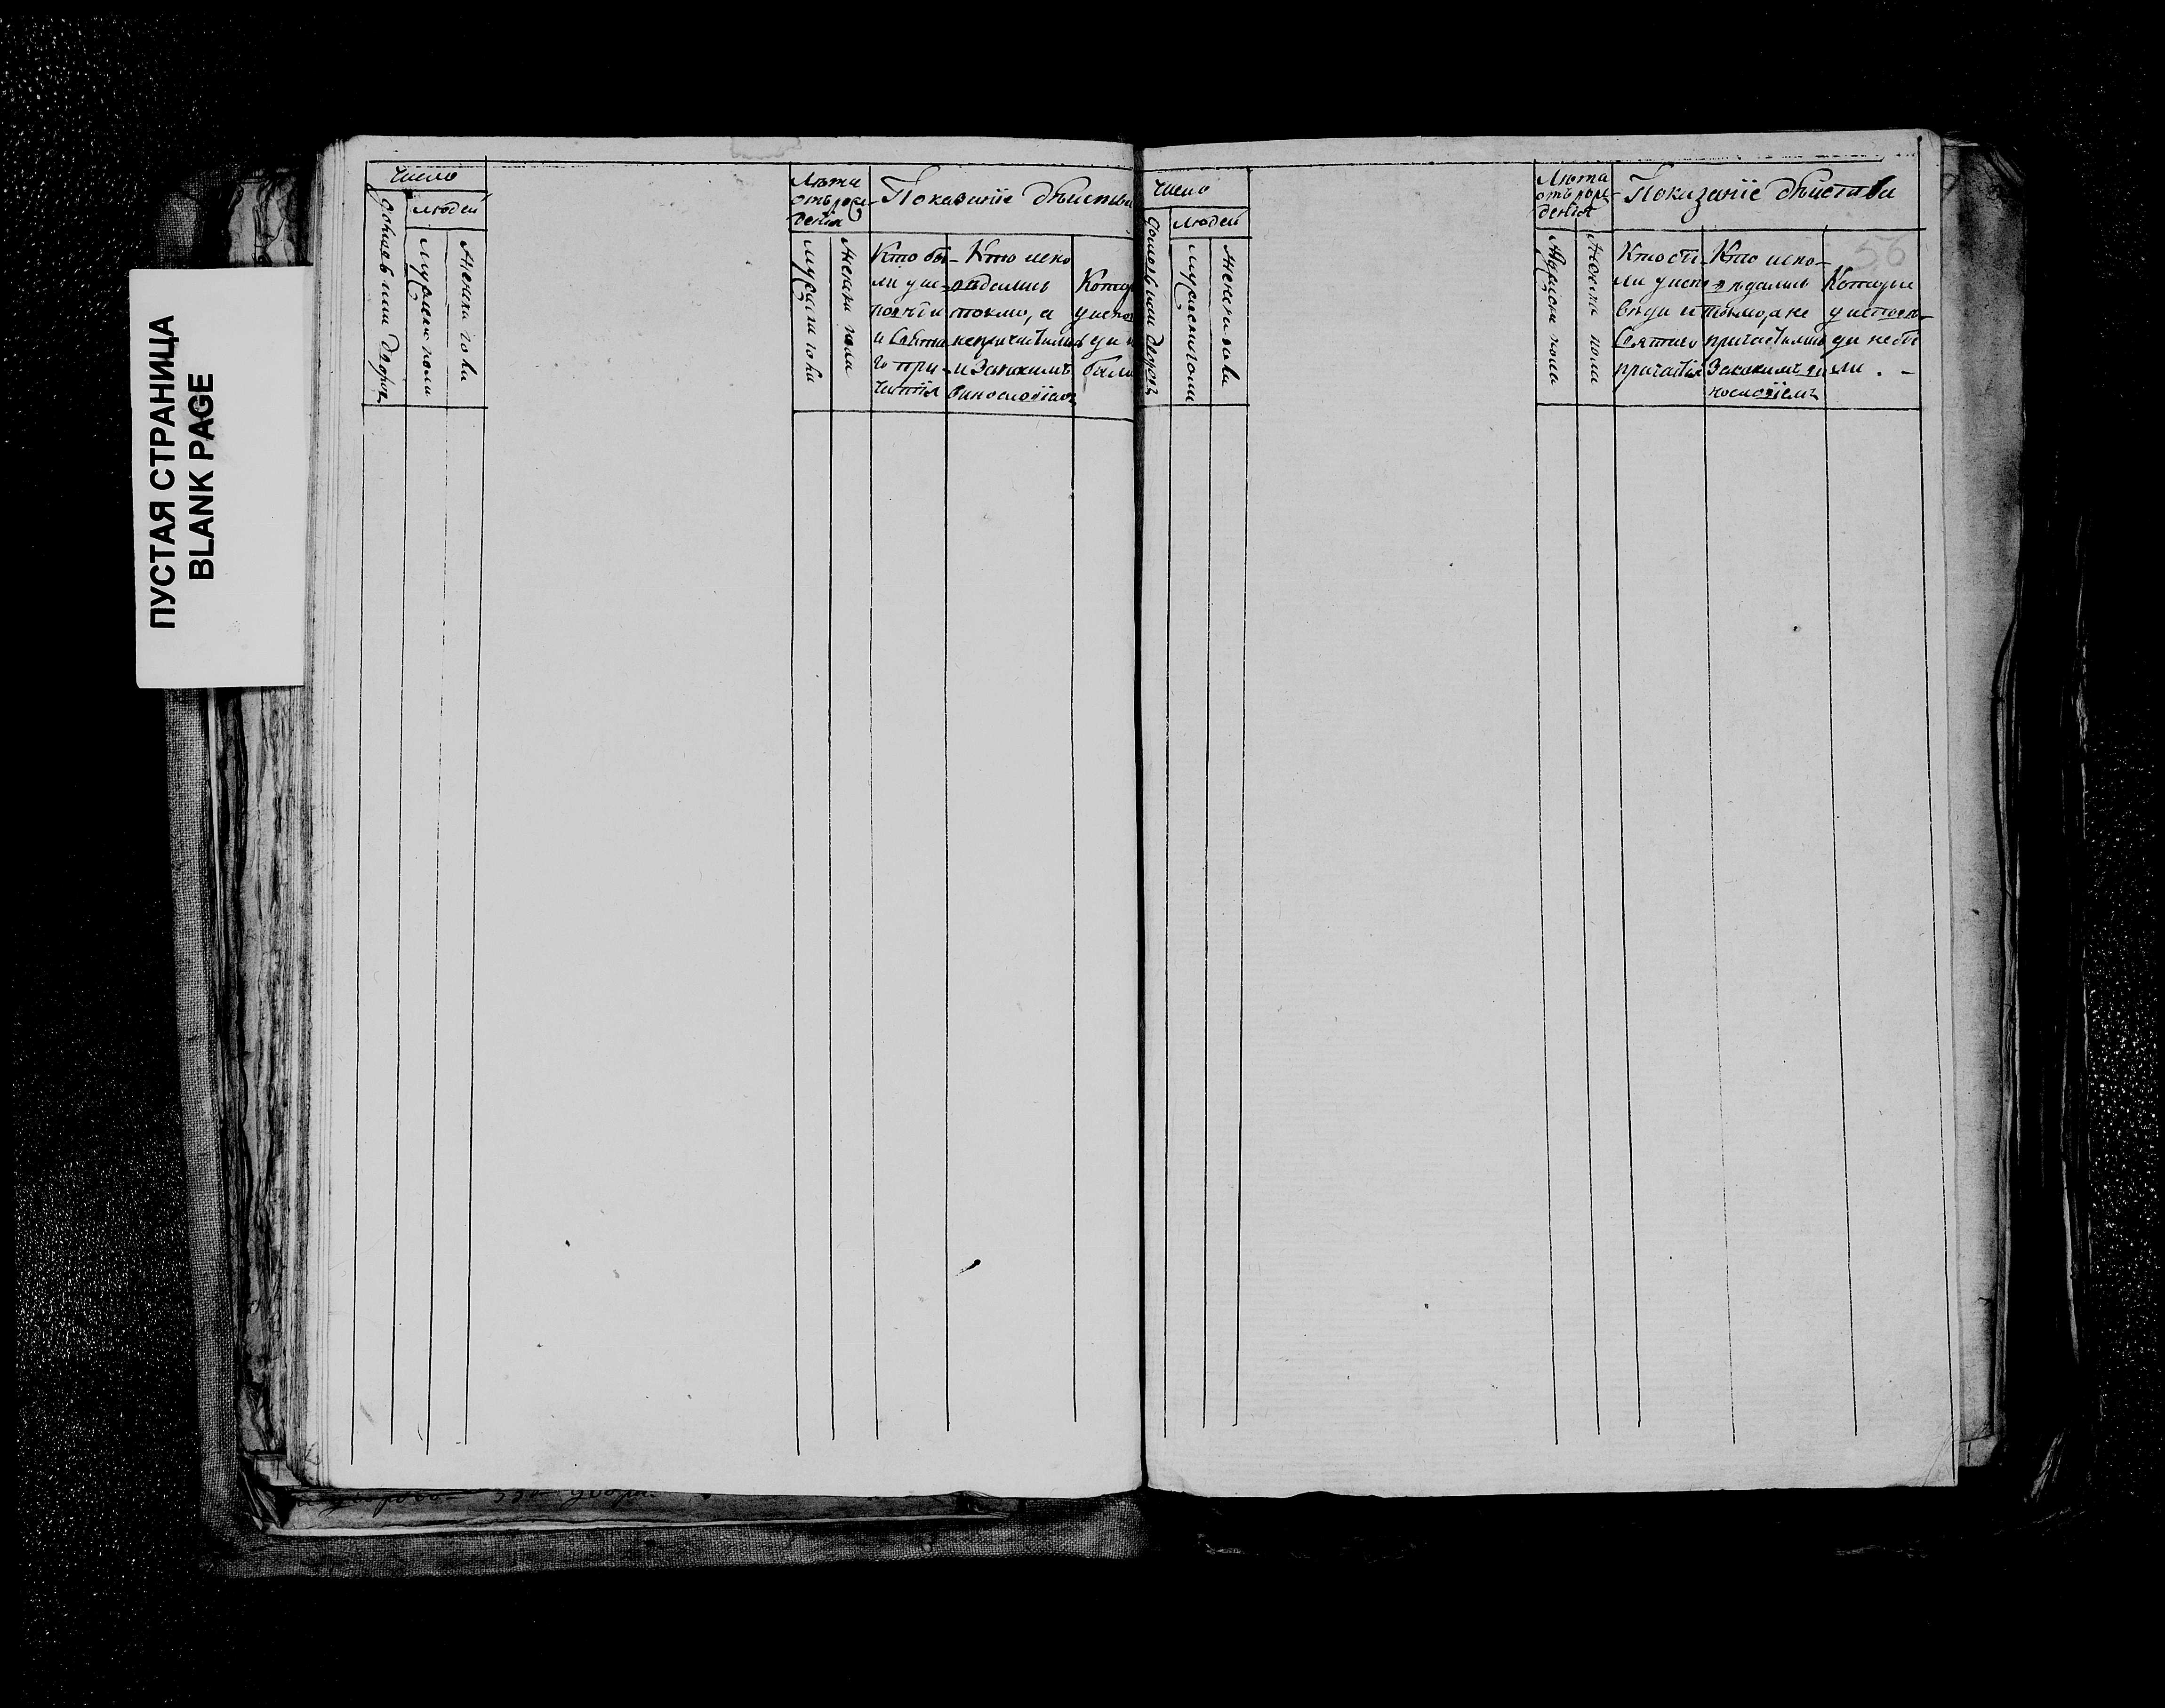 ПУСТАЯ СТРАНИЦА
BLANK PAGE
Число
людей
Домовъ или дворовъ
Мужеска пола
Женска пола
Лѣта
отъ рож-
денія
Мужеска пола
Женска пола
Показаніе дѣйства
Кто бы-
ли у ис-
и Свята-
го при-
частія
Кто испо-
вѣдались
токмо, а
непричастились
и Закакимъ
винословіемъ
Котор
у испо
ди н
были
Число
людей
Домовъ или дворовъ
Мужеска пола
Женска пола
Лѣта
отъ рож-
денія
Мужеска пола
Женска пола
Показаніе дѣйства
56
Кто бы-
ли у испо
вѣди и
Святаго
причастія
Кто испо-
вѣдались
токмо, а не
причастились
Закакимъ ви
нословіемъ
Которые
у исповѣ-
ди не бы
ли . -